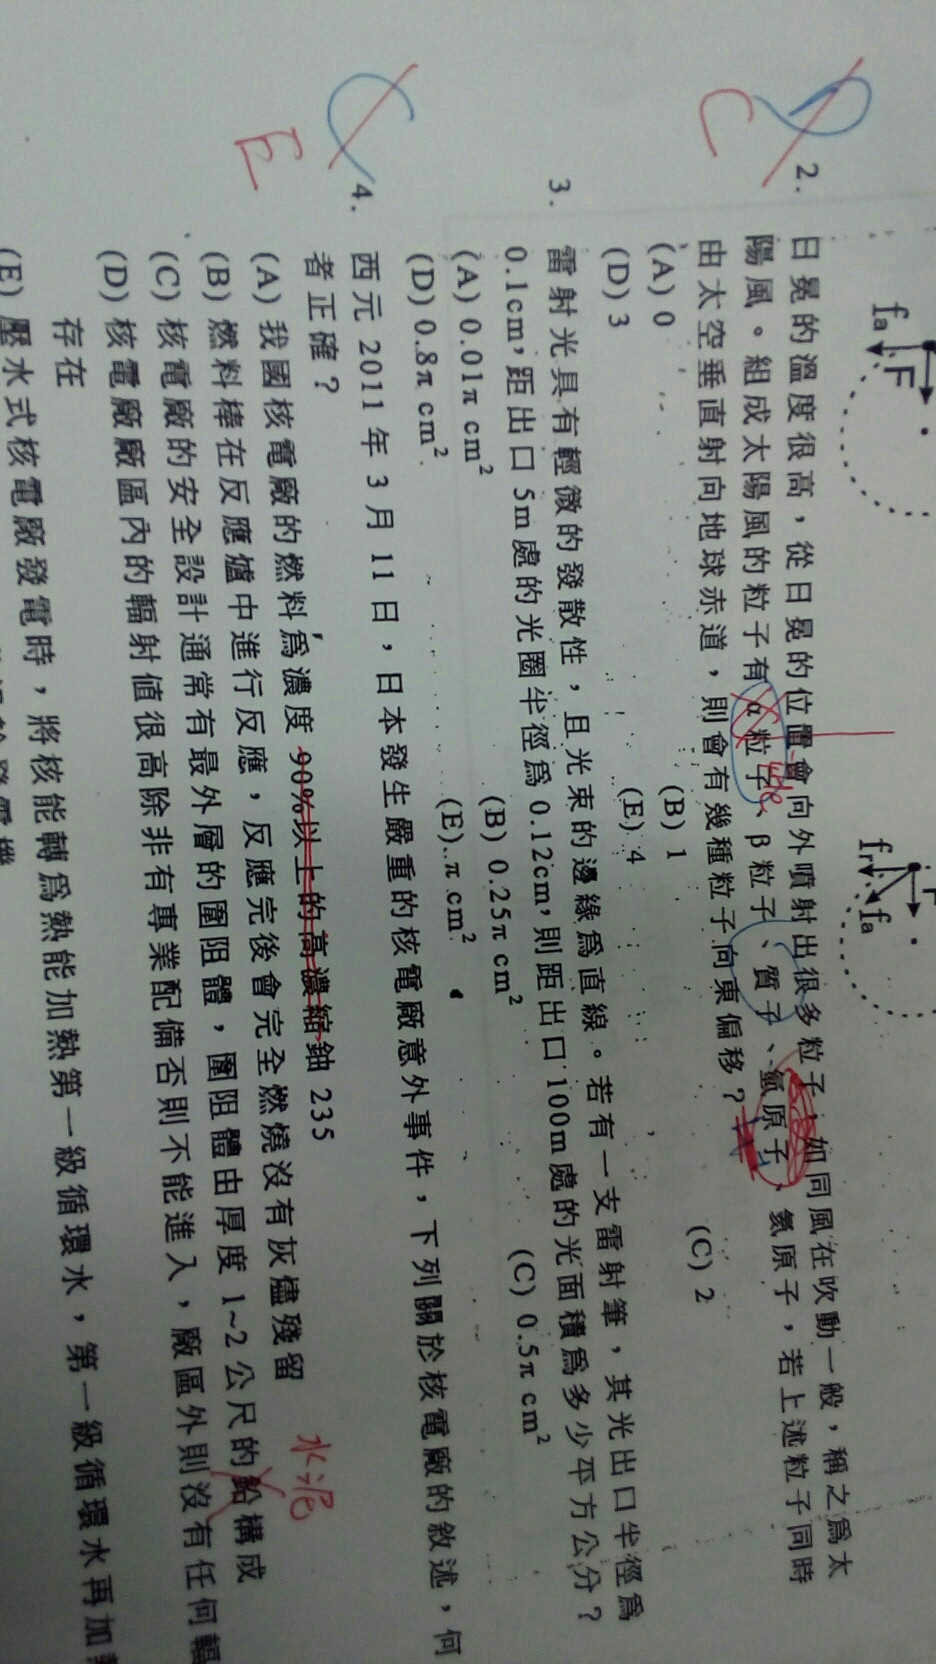 fa F
fr fa
2. 日冕的溫度很高，從日冕的位置會向外噴射出很多粒子，如同風在吹動一般，稱之為太
陽風。組成太陽風的粒子有α粒子、β粒子、質子、氫原子、氦原子，若上述粒子同時
由太空垂直射向地球赤道，則會有幾種粒子向東偏移？
(A) 0 (B) 1 (C) 2
(D) 3 (E) 4
C
3. 雷射光具有輕微的發散性，且光束的邊緣為直線。若有一支雷射筆，其光出口半徑為
0.1cm，距出口 5m 處的光圈半徑為 0.12cm，則距出口 100m 處的光面積為多少平方公分？
(A) 0.01π cm² (B) 0.25π cm² (C) 0.5π cm²
(D) 0.8π cm² (E) π cm²
4. 西元 2011 年 3 月 11 日，日本發生嚴重的核電廠意外事件，下列關於核電廠的敘述，何
者正確？
E
(A) 我國核電廠的燃料為濃度 90%以上的高濃縮鈾 235
(B) 燃料棒在反應爐中進行反應，反應完後會完全燃燒沒有灰燼殘留
水泥
(C) 核電廠的安全設計通常有最外層的圍阻體，圍阻體由厚度 1~2 公尺的鉛構成
(D) 核電廠廠區內的輻射值很高除非有專業配備否則不能進入，廠區外則沒有任何輻
存在
(E) 壓水式核電廠發電時，將核能轉為熱能加熱第一級循環水，第一級循環水再加熱